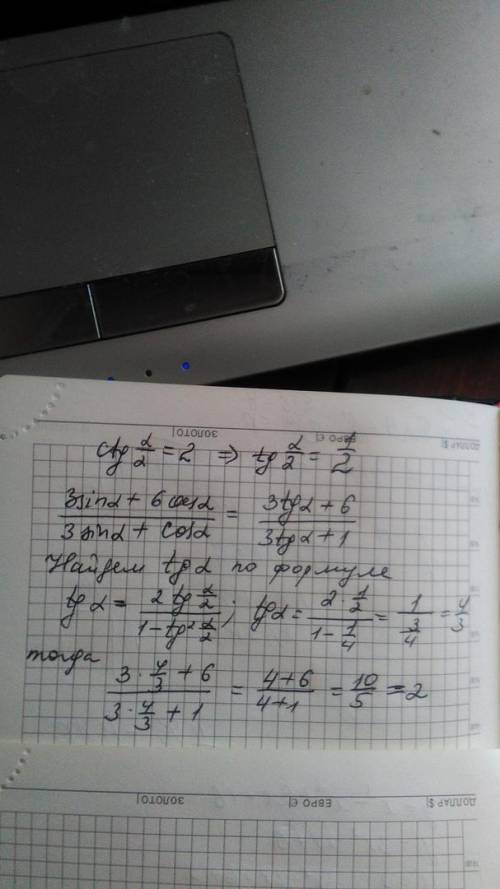 ДОЛЛАР $ ЕВРО € ЗОЛОТО
ctg α/2 = 2 ⇒ tg α/2 = 1/2
(3sinα + 6cosα)/(3sinα + cosα) = (3tgα + 6)/(3tgα + 1)
Найдем tgα по формуле
tgα = (2 tg α/2)/(1 - tg² α/2); tgα = (2 · 1/2)/(1 - 1/4) = 1/(3/4) = 4/3
тогда
(3 · 4/3 + 6)/(3 · 4/3 + 1) = (4+6)/(4+1) = 10/5 = 2
ДОЛЛАР $ ЕВРО € ЗОЛОТО